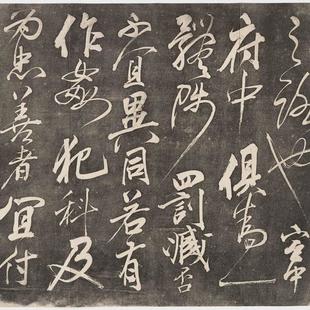 之路也宮中
府中俱為一
體陟罰臧否
不宜異同若有
作姦犯科及
為忠善者宜付